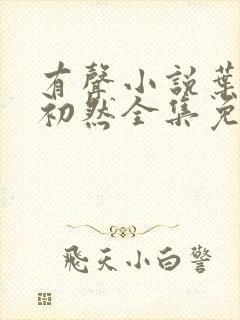 有聲小說葉
初然全集免
飛天小白警